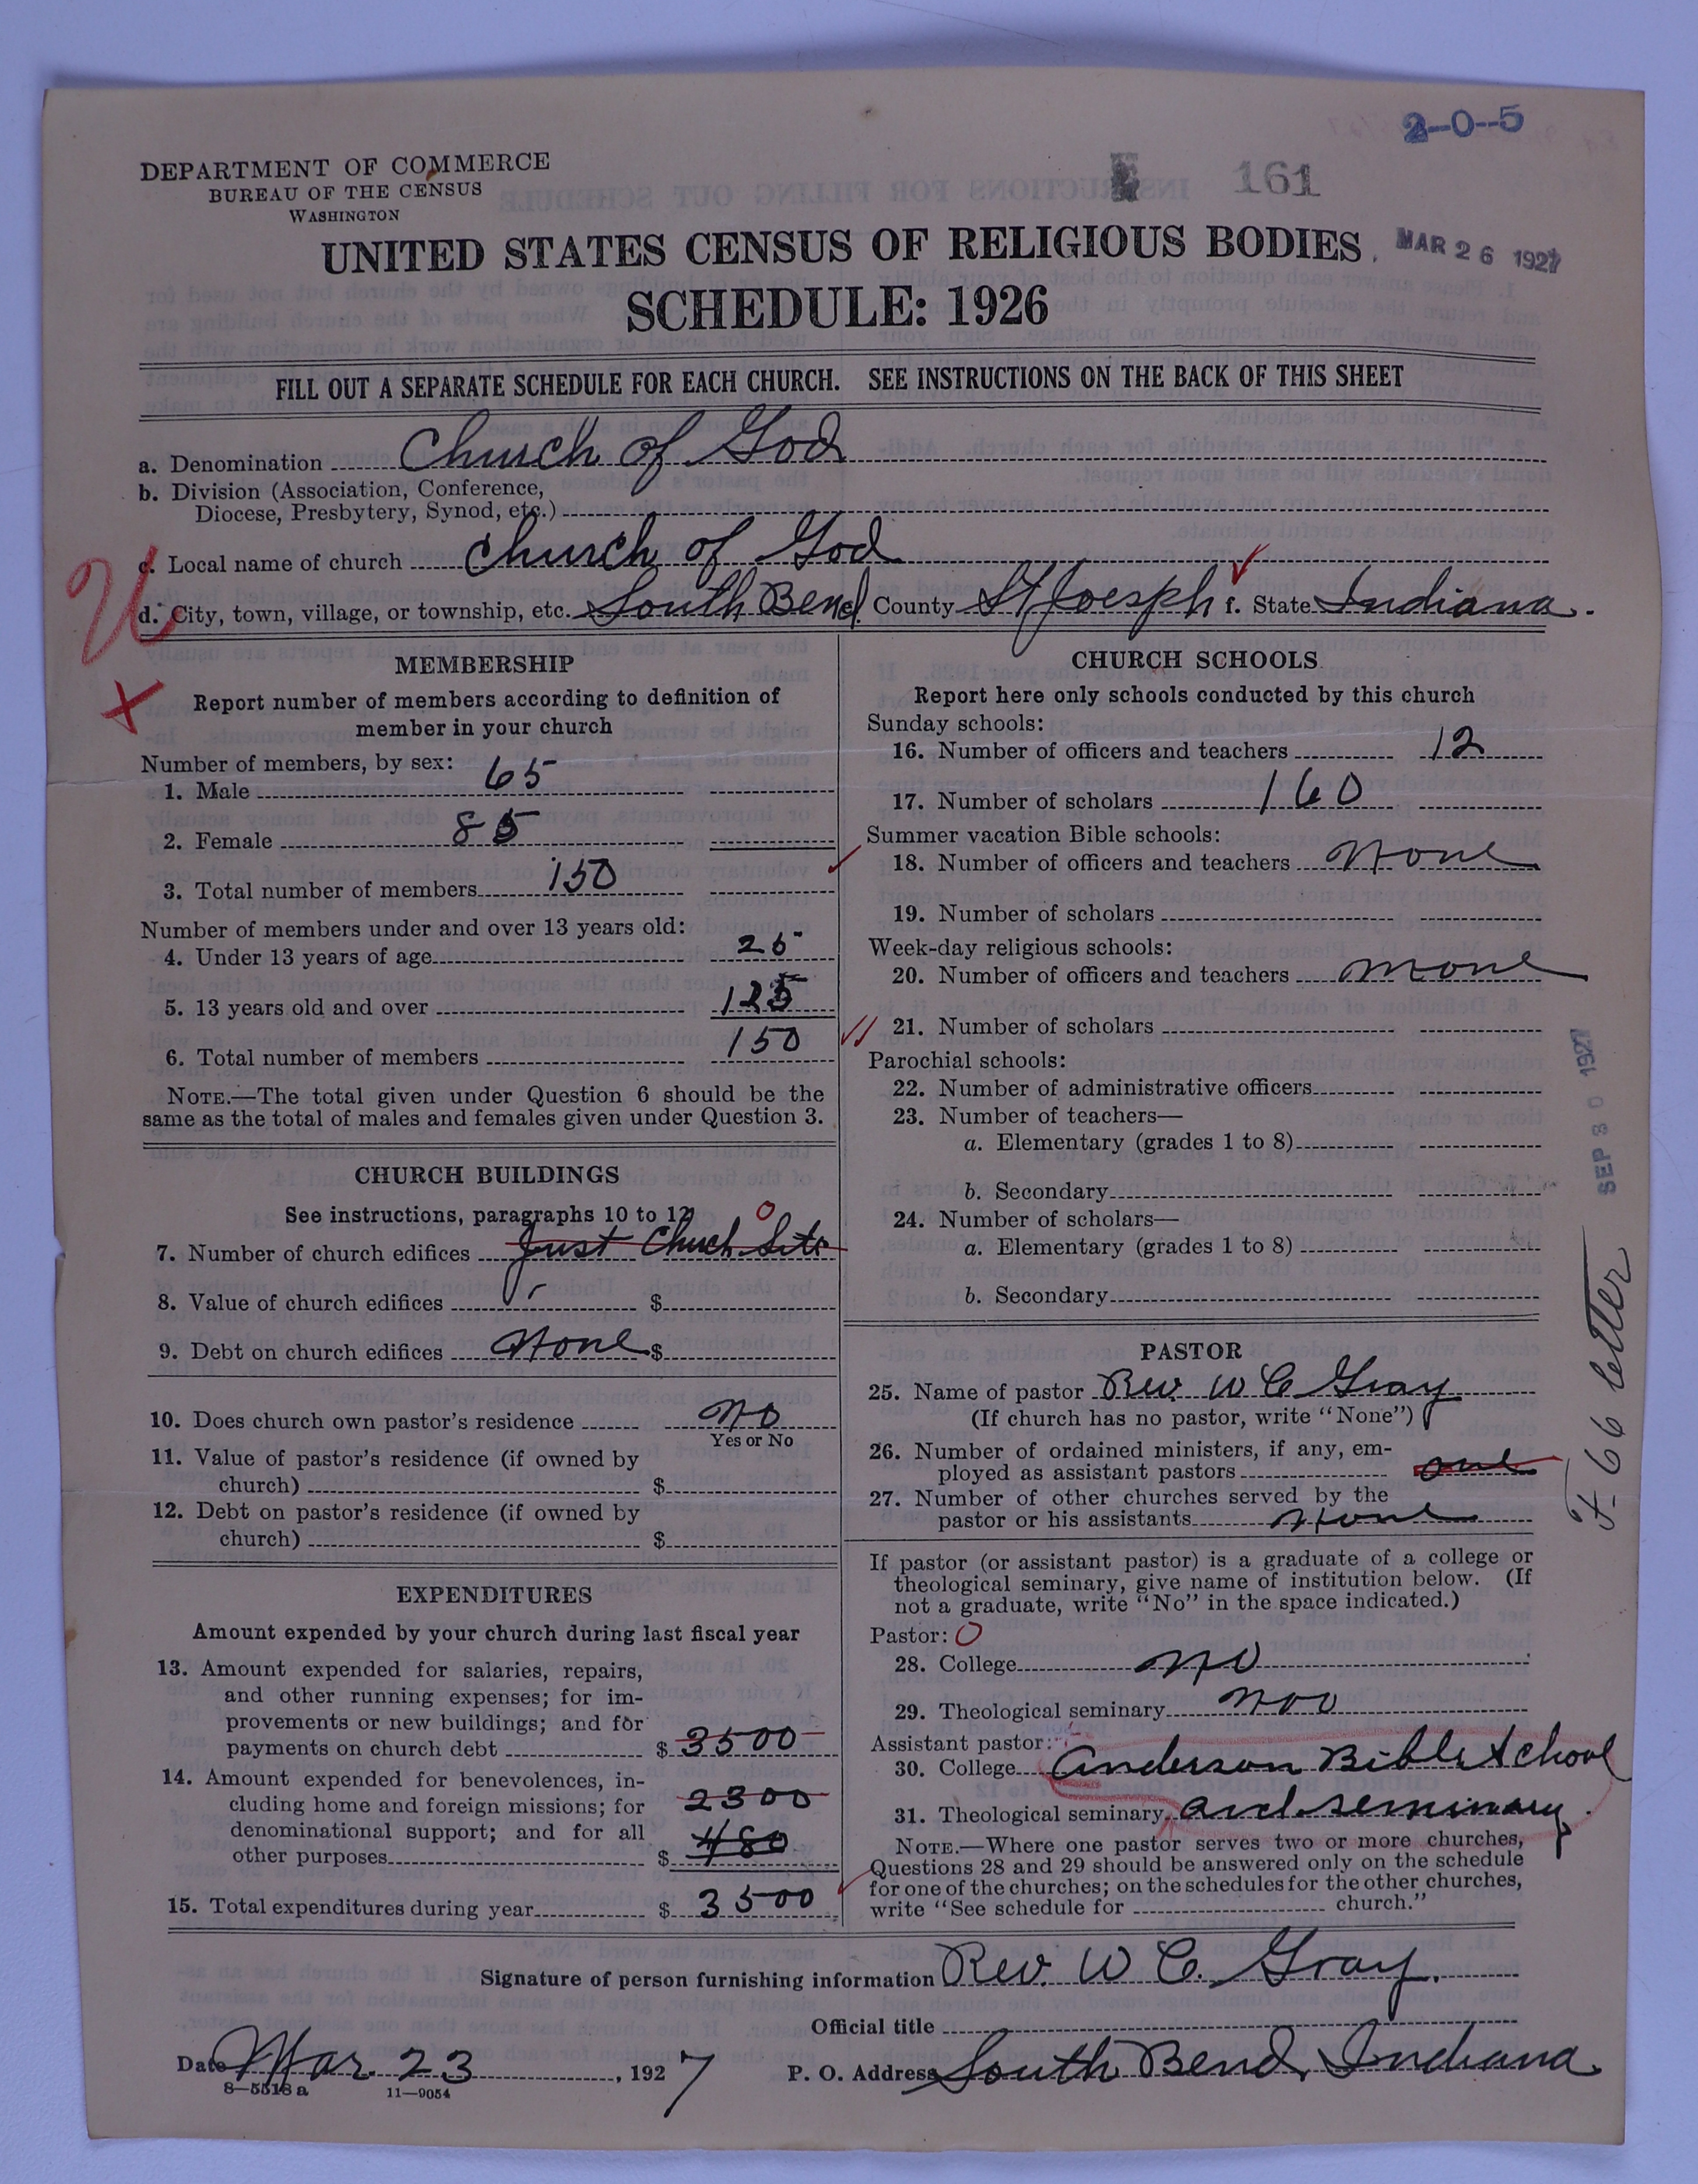 2-0-5
DEPARTMENT OF COMMERCE
BUREAU OF THE CENSUS
WASHINGTON
161
UNITED STATES CENSUS OF RELIGIOUS BODIES
MAR 26 1927
SCHEDULE: 1926
FILL OUT A SEPARATE SCHEDULE FOR EACH CHURCH. SEE INSTRUCTIONS ON THE BACK OF THIS SHEET
a. Denomination Church of God
b. Division (Association, Conference,
Diocese, Presbytery, Synod, etc.)
c. Local name of church Church of God
d. City, town, village, or township, etc. South Bend County St Joesph f. State Indiana.
MEMBERSHIP
Report number of members according to definition of
member in your church
Number of members, by sex:
1. Male 65
2. Female 85
3. Total number of members 150
Number of members under and over 13 years old:
4. Under 13 years of age 25
5. 13 years old and over 125
6. Total number of members 150
NOTE.—The total given under Question 6 should be the
same as the total of males and females given under Question 3.
CHURCH BUILDINGS
See instructions, paragraphs 10 to 12
0
7. Number of church edifices Just Chuch Site
8. Value of church edifices $
9. Debt on church edifices None $
10. Does church own pastor's residence No
Yes or No
11. Value of pastor's residence (if owned by
church) $
12. Debt on pastor's residence (if owned by
church) $
EXPENDITURES
Amount expended by your church during last fiscal year
13. Amount expended for salaries, repairs,
and other running expenses; for im-
provements or new buildings; and for
payments on church debt $ 3500
14. Amount expended for benevolences, in-
cluding home and foreign missions; for 2300
denominational support; and for all
other purposes $ 480
15. Total expenditures during year $ 3500
CHURCH SCHOOLS
Report here only schools conducted by this church
Sunday schools:
16. Number of officers and teachers 12
17. Number of scholars 160
Summer vacation Bible schools:
18. Number of officers and teachers None
19. Number of scholars
Week-day religious schools:
20. Number of officers and teachers None
21. Number of scholars
Parochial schools:
22. Number of administrative officers
23. Number of teachers—
a. Elementary (grades 1 to 8)
b. Secondary
24. Number of scholars—
a. Elementary (grades 1 to 8)
b. Secondary
PASTOR
25. Name of pastor Rev. W C Gray
(If church has no pastor, write "None")
26. Number of ordained ministers, if any, em-
ployed as assistant pastors one
27. Number of other churches served by the
pastor or his assistants None
If pastor (or assistant pastor) is a graduate of a college or
theological seminary, give name of institution below. (If
not a graduate, write "No" in the space indicated.)
Pastor: 0
28. College No
29. Theological seminary Noo
Assistant pastor:
30. College Anderson Bible School
31. Theological seminary and seminary.
NOTE.—Where one pastor serves two or more churches,
Questions 28 and 29 should be answered only on the schedule
for one of the churches; on the schedules for the other churches,
write "See schedule for church."
Signature of person furnishing information Rev. W C. Gray.
Official title
Date Mar. 23, 1927 P. O. Address South Bend, Indiana
8-5518a 11-9054
SEP 30 1927
F-66 letter